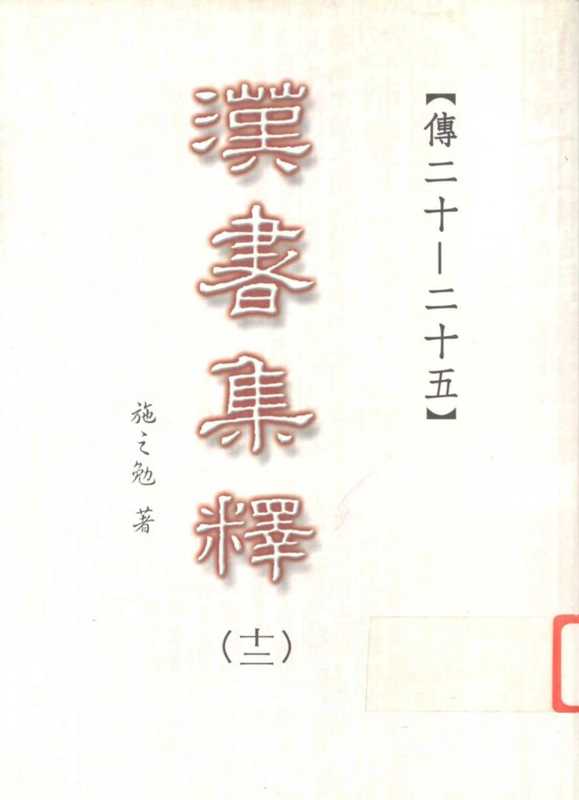 【傳二十－二十五】
漢書集釋
(十二)
施之勉 著